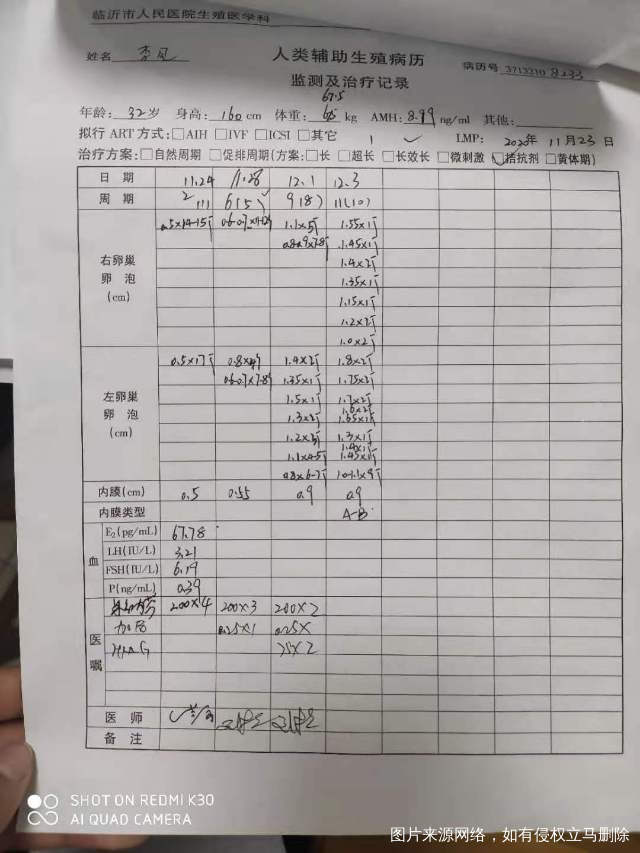 临沂市人民医院生殖医学科
人类辅助生殖病历
姓名 病历号 3713210 8233
监测及治疗记录
67.5
年龄: 32岁 身高: 160 cm 体重: kg AMH: 8.99 ng/ml 其他:
拟行 ART 方式: □AIH □IVF □ICSI □其它 1 ✓ LMP: 2020年 11月23日
治疗方案: □自然周期 □促排周期(方案: □长 □超长 □长效长 □微刺激 □拮抗剂 □黄体期)
日 期 11.24 11.28 12.1 12.3
周 期 2 6(5) 9(8) 11(10)
右卵巢
卵 泡
(cm)
0.5×14-15个 1.1×5个 1.55×1个
1.45×1个
1.4×2个
1.35×1个
1.15×1个
1.2×2个
1.0×2个
左卵巢
卵 泡
(cm)
0.5×17个 1.4×2个 1.8×2个
1.35×1个 1.75×2个
1.5×1个 1.7×2个
1.6×2个
1.3×2个 1.55×1个
1.2×2个 1.3×1个
1.4×1个
1.1×4-5个 1.45×1个
0.8×6-7个
内膜(cm) 0.5 0.55 0.9 0.9
内膜类型 A-B
血
E₂(pg/mL) 67.78
LH(IU/L) 3.21
FSH(IU/L) 6.19
P(ng/mL) 0.39
医嘱
200×4 200×3 200×2
0.25×1 0.25×
75×2
医 师
备 注
SHOT ON REDMI K30
AI QUAD CAMERA
图片来源网络，如有侵权立马删除